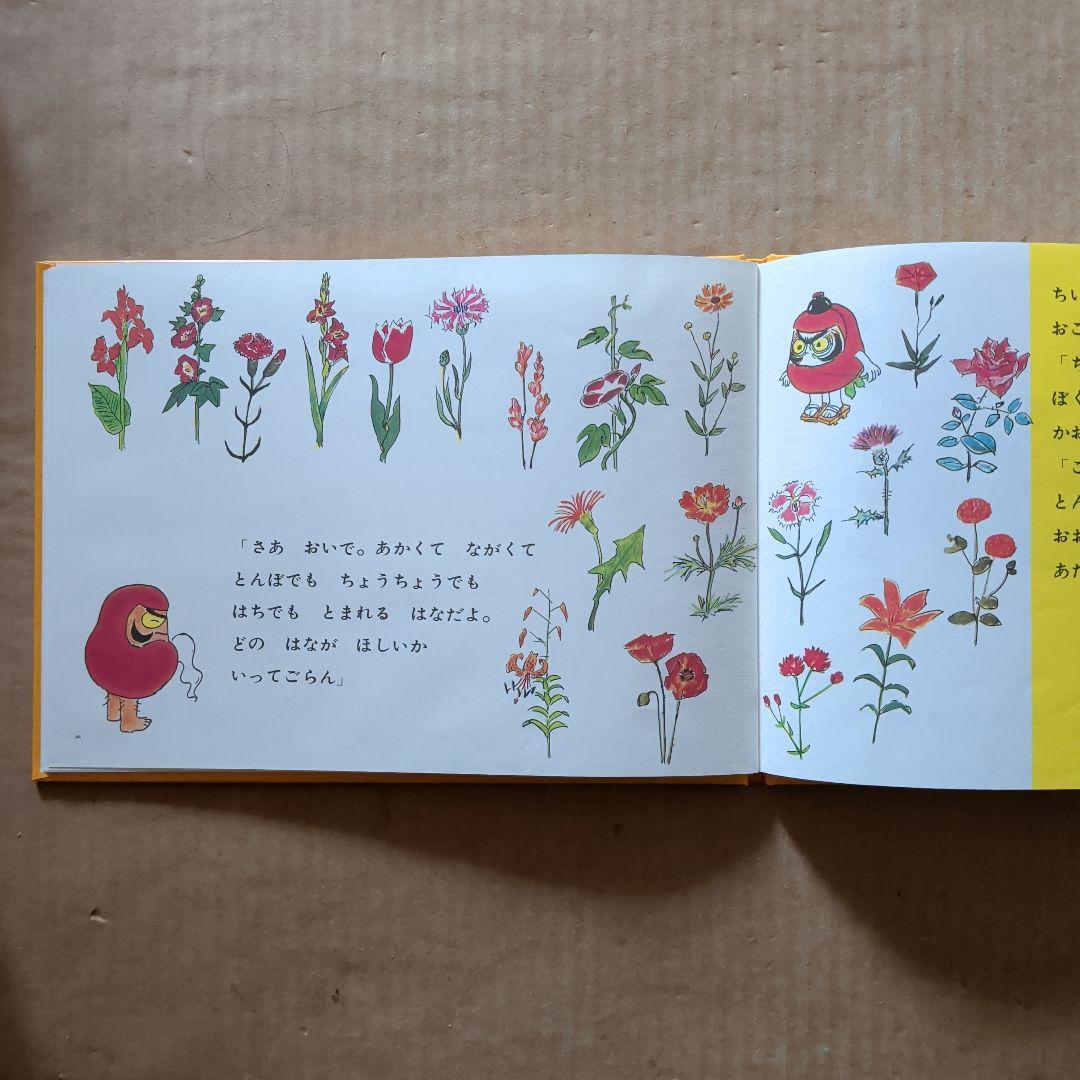 「さあ　おいで。あかくて　ながくて
とんぼでも　ちょうちょうでも
はちでも　とまれる　はなだよ。
どの　はなが　ほしいか
いってごらん」
ちい
おこ
「ち
ぼく
かお
「こ
とん
おお
あた